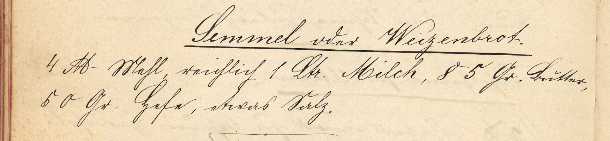 Semmel oder Weizenbrot.
4 ℔ Mehl, reichlich 1 Ltr. Milch, 85 Gr. Butter,
50 Gr. Hefe, etwas Salz.